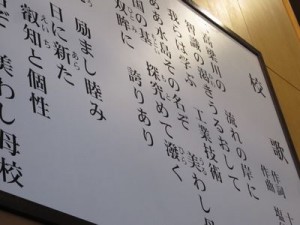 校歌
作詞 土
作曲
高梁川の 流れの岸に
智識の渇きうるおして
我らは学ぶ 工業技術
ああ水島その名ぞ 美わし
国の基 探究めて潑く
眸に 誇りあり
励まし睦み
日に新た
叡知と個性
美わし母校